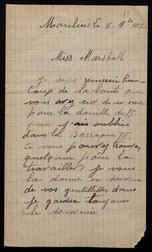 Moulins le 8
Miss Marshall
Je vous remercie beau
coup de la bonté que
vous avez eue de m'envo
pour la dentelle de
que j'avais oubliée
dans la Barraque
si vous pouvez trouver
quelqu'un pour la
travailler je vous
la donne en souvenir
de vos gentillesses dont
je garderai toujours
le souvenir